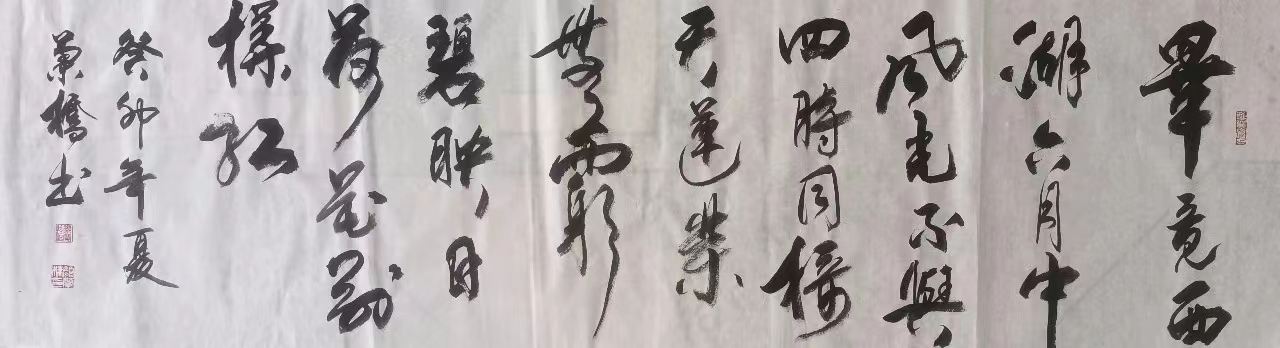 畢竟西
湖六月中
风光不與
四時同接
天蓮葉
無窮
碧映日
荷花别
樣红
癸卯年夏
橋书